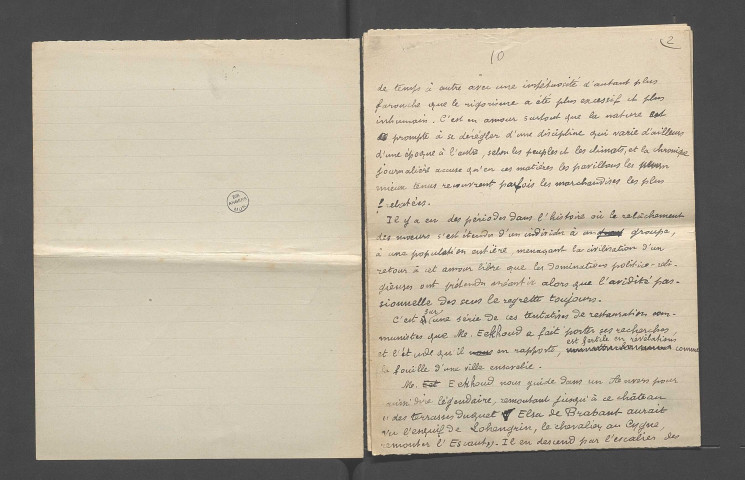 2
10
de temps à autre avec une impétuosité d'autant plus
farouche que le rigorisme a été plus excessif et plus
inhumain. C'est en amour surtout que la nature est
prompte à se dérégler d'une discipline qui varie d'ailleurs
d'une époque à l'autre, selon les peuples et les climats, et la chronique
journalière accuse qu'en ces matières les pavillons les
mieux tenus recouvrent parfois les marchandises les plus
frelatées.
Il y a eu des périodes dans l'histoire où le relâchement
des mœurs s'est étendu d'un individu à un groupe,
à une population entière, menaçant la civilisation d'un
retour à cet amour libre que les dominations politico-reli-
gieuses ont prétendu anéantir alors que l'avidité pas-
sionnelle des sens le regrette toujours.
C'est sur une série de ces tentatives de restauration com-
muniste que M. Eekhoud a fait porter ses recherches,
et l'étude qu'il en rapporte, est fertile en révélations comme
la fouille d'une ville ensevelie.
M. Eekhoud nous guide dans un Anvers pour
ainsi dire légendaire, remontant jusqu'à ce château
« des terrasses duquel Elsa de Brabant aurait
vu l'esquif de Lohengrin, le chevalier au Cygne,
remonter l'Escaut ». Il en descend par l'escalier des